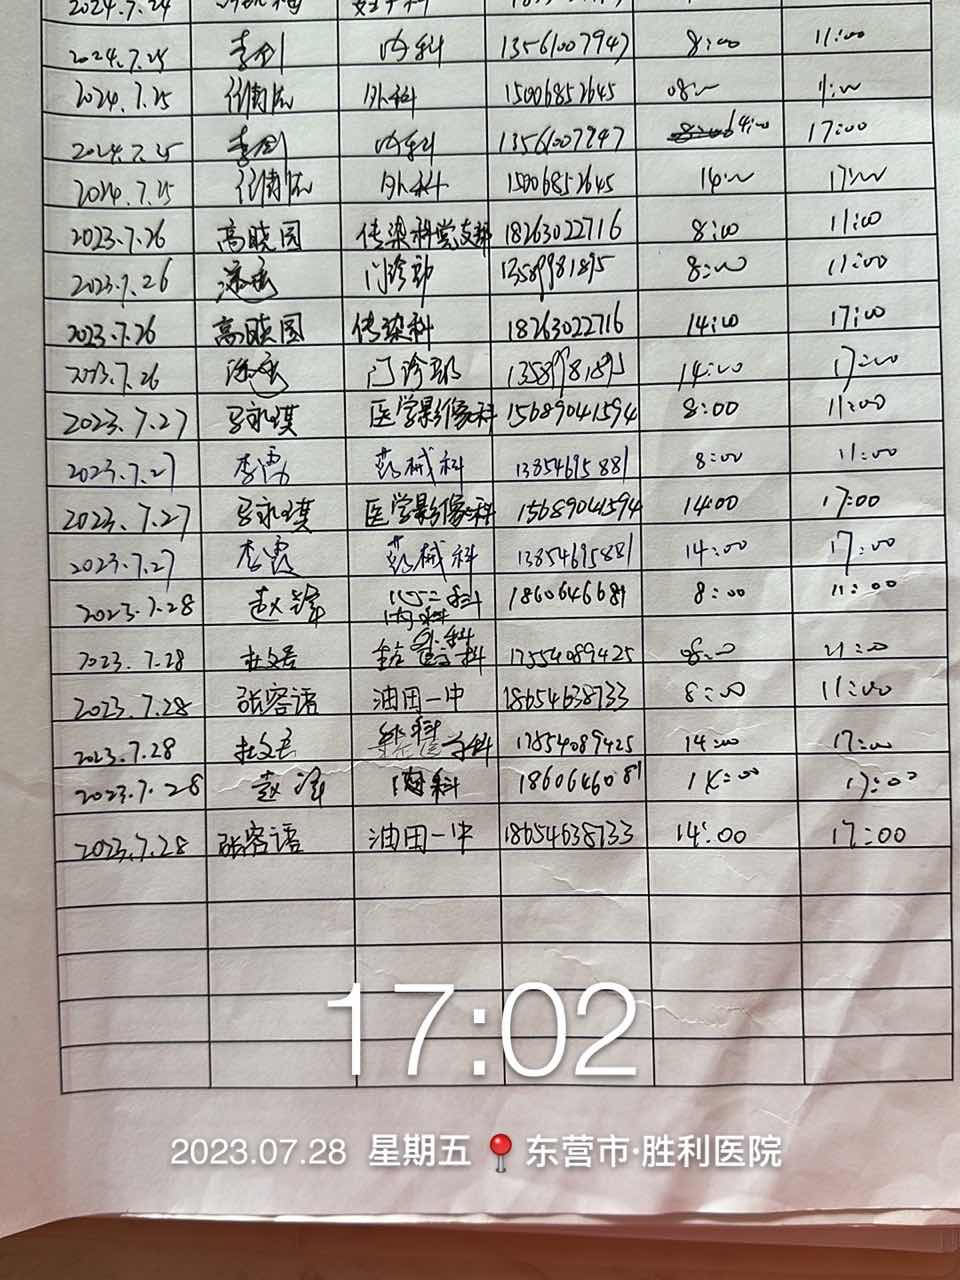 2024.7.24
2024.7.25 李剑 内科 13561007947 8:00 11:00
2024.7.25 外科 15006852645 08 11:00
2024.7.25 李剑 内科 13561007947 14:00 17:00
2024.7.25 外科 15006852645 14 17
2023.7.26 高晓园 传染科党支部 18263022716 8:00 11:00
2023.7.26 门诊部 13589981895 8:00 11:00
2023.7.26 高晓园 传染科 18263022716 14:00 17:00
2023.7.26 门诊部 13589981895 14:00 17:00
2023.7.27 马永琪 医学影像科 15689041594 8:00 11:00
2023.7.27 李霞 药械科 13854695881 8:00 11:00
2023.7.27 马永琪 医学影像科 15689041594 14:00 17:00
2023.7.27 李霞 药械科 13854695881 14:00 17:00
2023.7.28 赵 心二科 内科 8:00 11:00
2023.7.28 杜文君 外科 17854089425 08:00 11:00
2023.7.28 张容语 油田一中 18654638733 8:00 11:00
2023.7.28 杜文君 外科 17854089425 14:00 17:00
2023.7.28 赵 内科 14:00 17:00
2023.7.28 张容语 油田一中 18654638733 14:00 17:00
17:02
2023.07.28 星期五 东营市·胜利医院